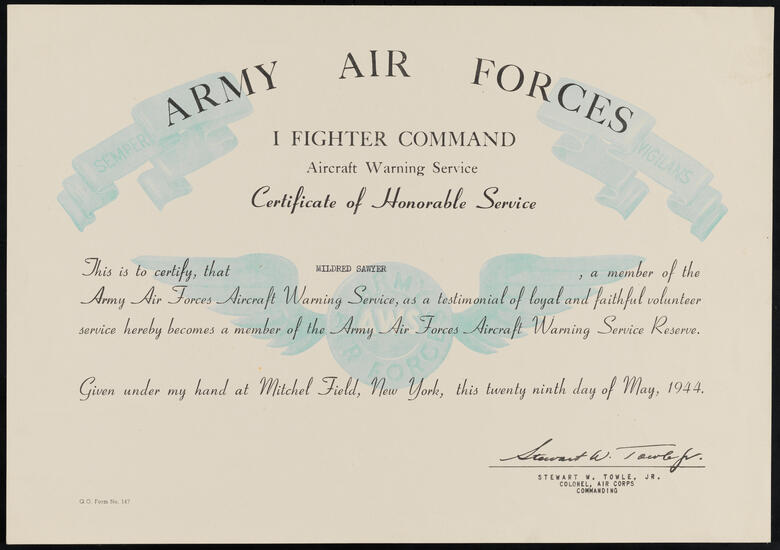 ARMY AIR FORCES
SEMPER
VIGILANS
I FIGHTER COMMAND
Aircraft Warning Service
Certificate of Honorable Service
This is to certify, that MILDRED SAWYER, a member of the
Army Air Forces Aircraft Warning Service, as a testimonial of loyal and faithful volunteer
service hereby becomes a member of the Army Air Forces Aircraft Warning Service Reserve.
ARMY
AWS
AIR FORCES
Given under my hand at Mitchel Field, New York, this twenty ninth day of May, 1944.
Stewart W. Towle Jr.
STEWART W. TOWLE, JR.
COLONEL, AIR CORPS
COMMANDING
G.O. Form No. 147